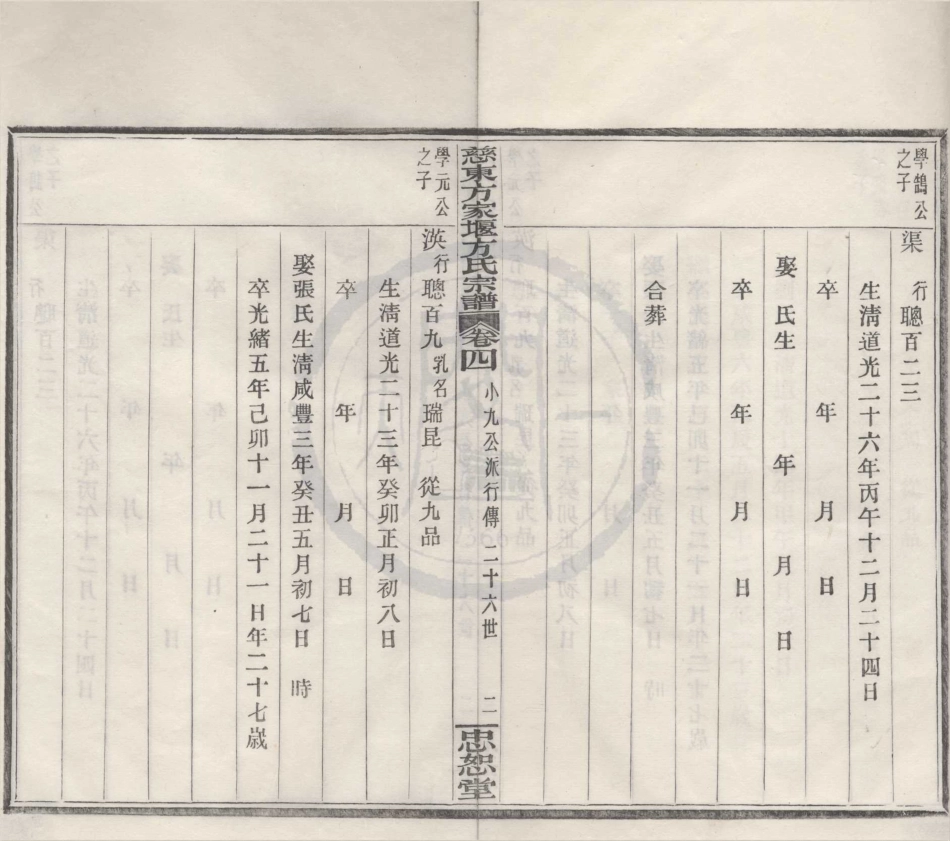 學鵠公
之子
渠 行聰百二三
生清道光二十六年丙午十二月二十四日
卒 年 月 日
娶 氏生 年 月 日
卒 年 月 日
合葬
慈東方家堰方氏宗譜 卷四 小九公派行傳 二十六世 二 忠恕堂
學元公
之子
渶 行聰百九 乳名瑞昆 從九品
生清道光二十三年癸卯正月初八日
卒 年 月 日
娶張氏生清咸豐三年癸丑五月初七日 時
卒光緒五年己卯十一月二十一日年二十七歲